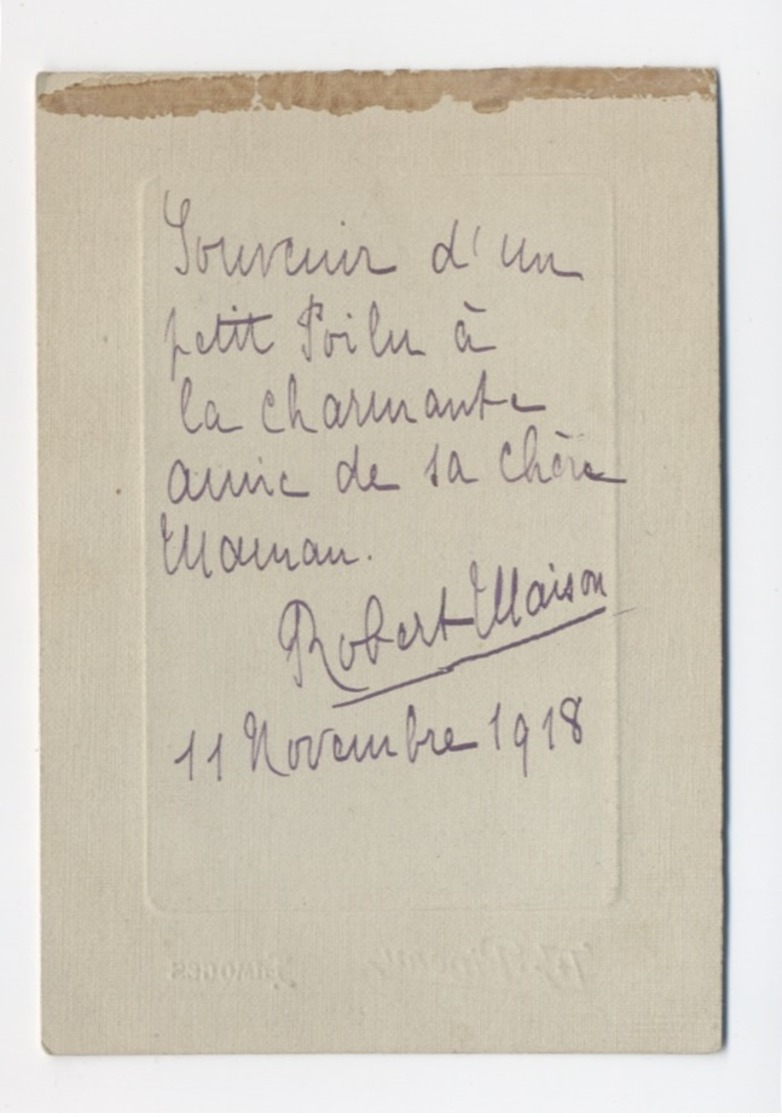 Souvenir d'un
petit Poilu à
la charmante
amie de sa chère
Maman.
Robert Maison
11 Novembre 1918
LIMOGES